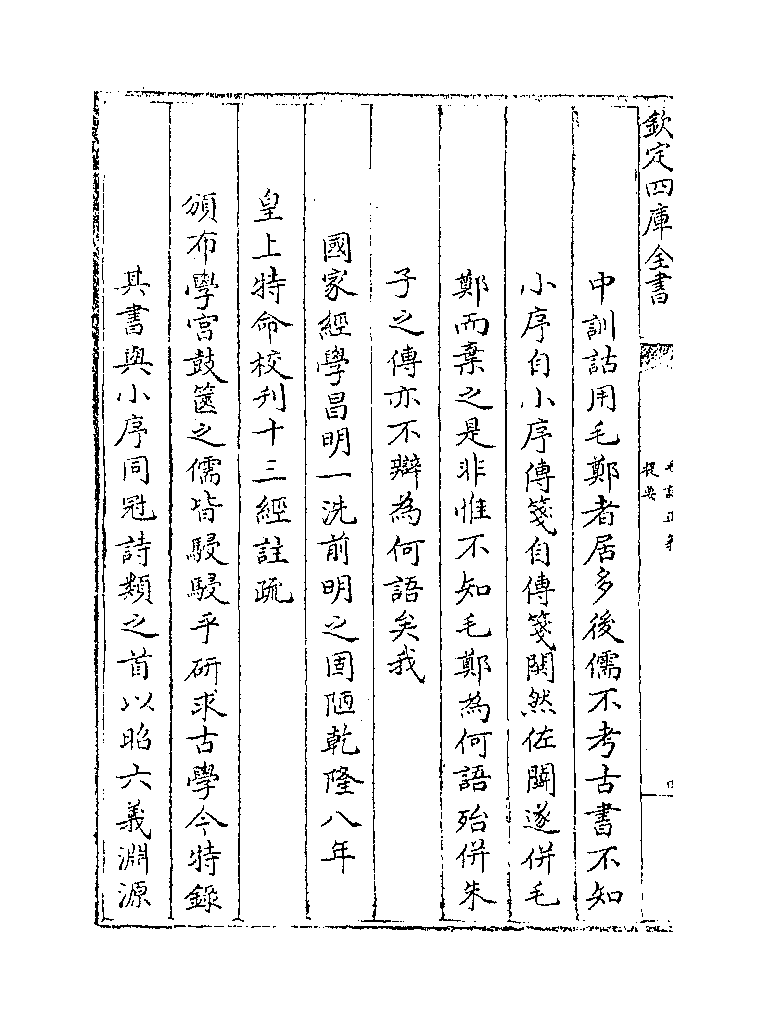 欽定四庫全書
毛詩正義
提要
中訓詁用毛鄭者居多後儒不考古書不知
小序自小序傳箋自傳箋閧然佐鬬遂併毛
鄭而棄之是非惟不知毛鄭為何語殆併朱
子之傳亦不辯為何語矣我
國家經學昌明一洗前明之固陋乾隆八年
皇上特命校刋十三經註疏
頒布學宮鼓篋之儒皆駸駸乎研求古學今特錄
其書與小序同冠詩類之首以昭六義淵源